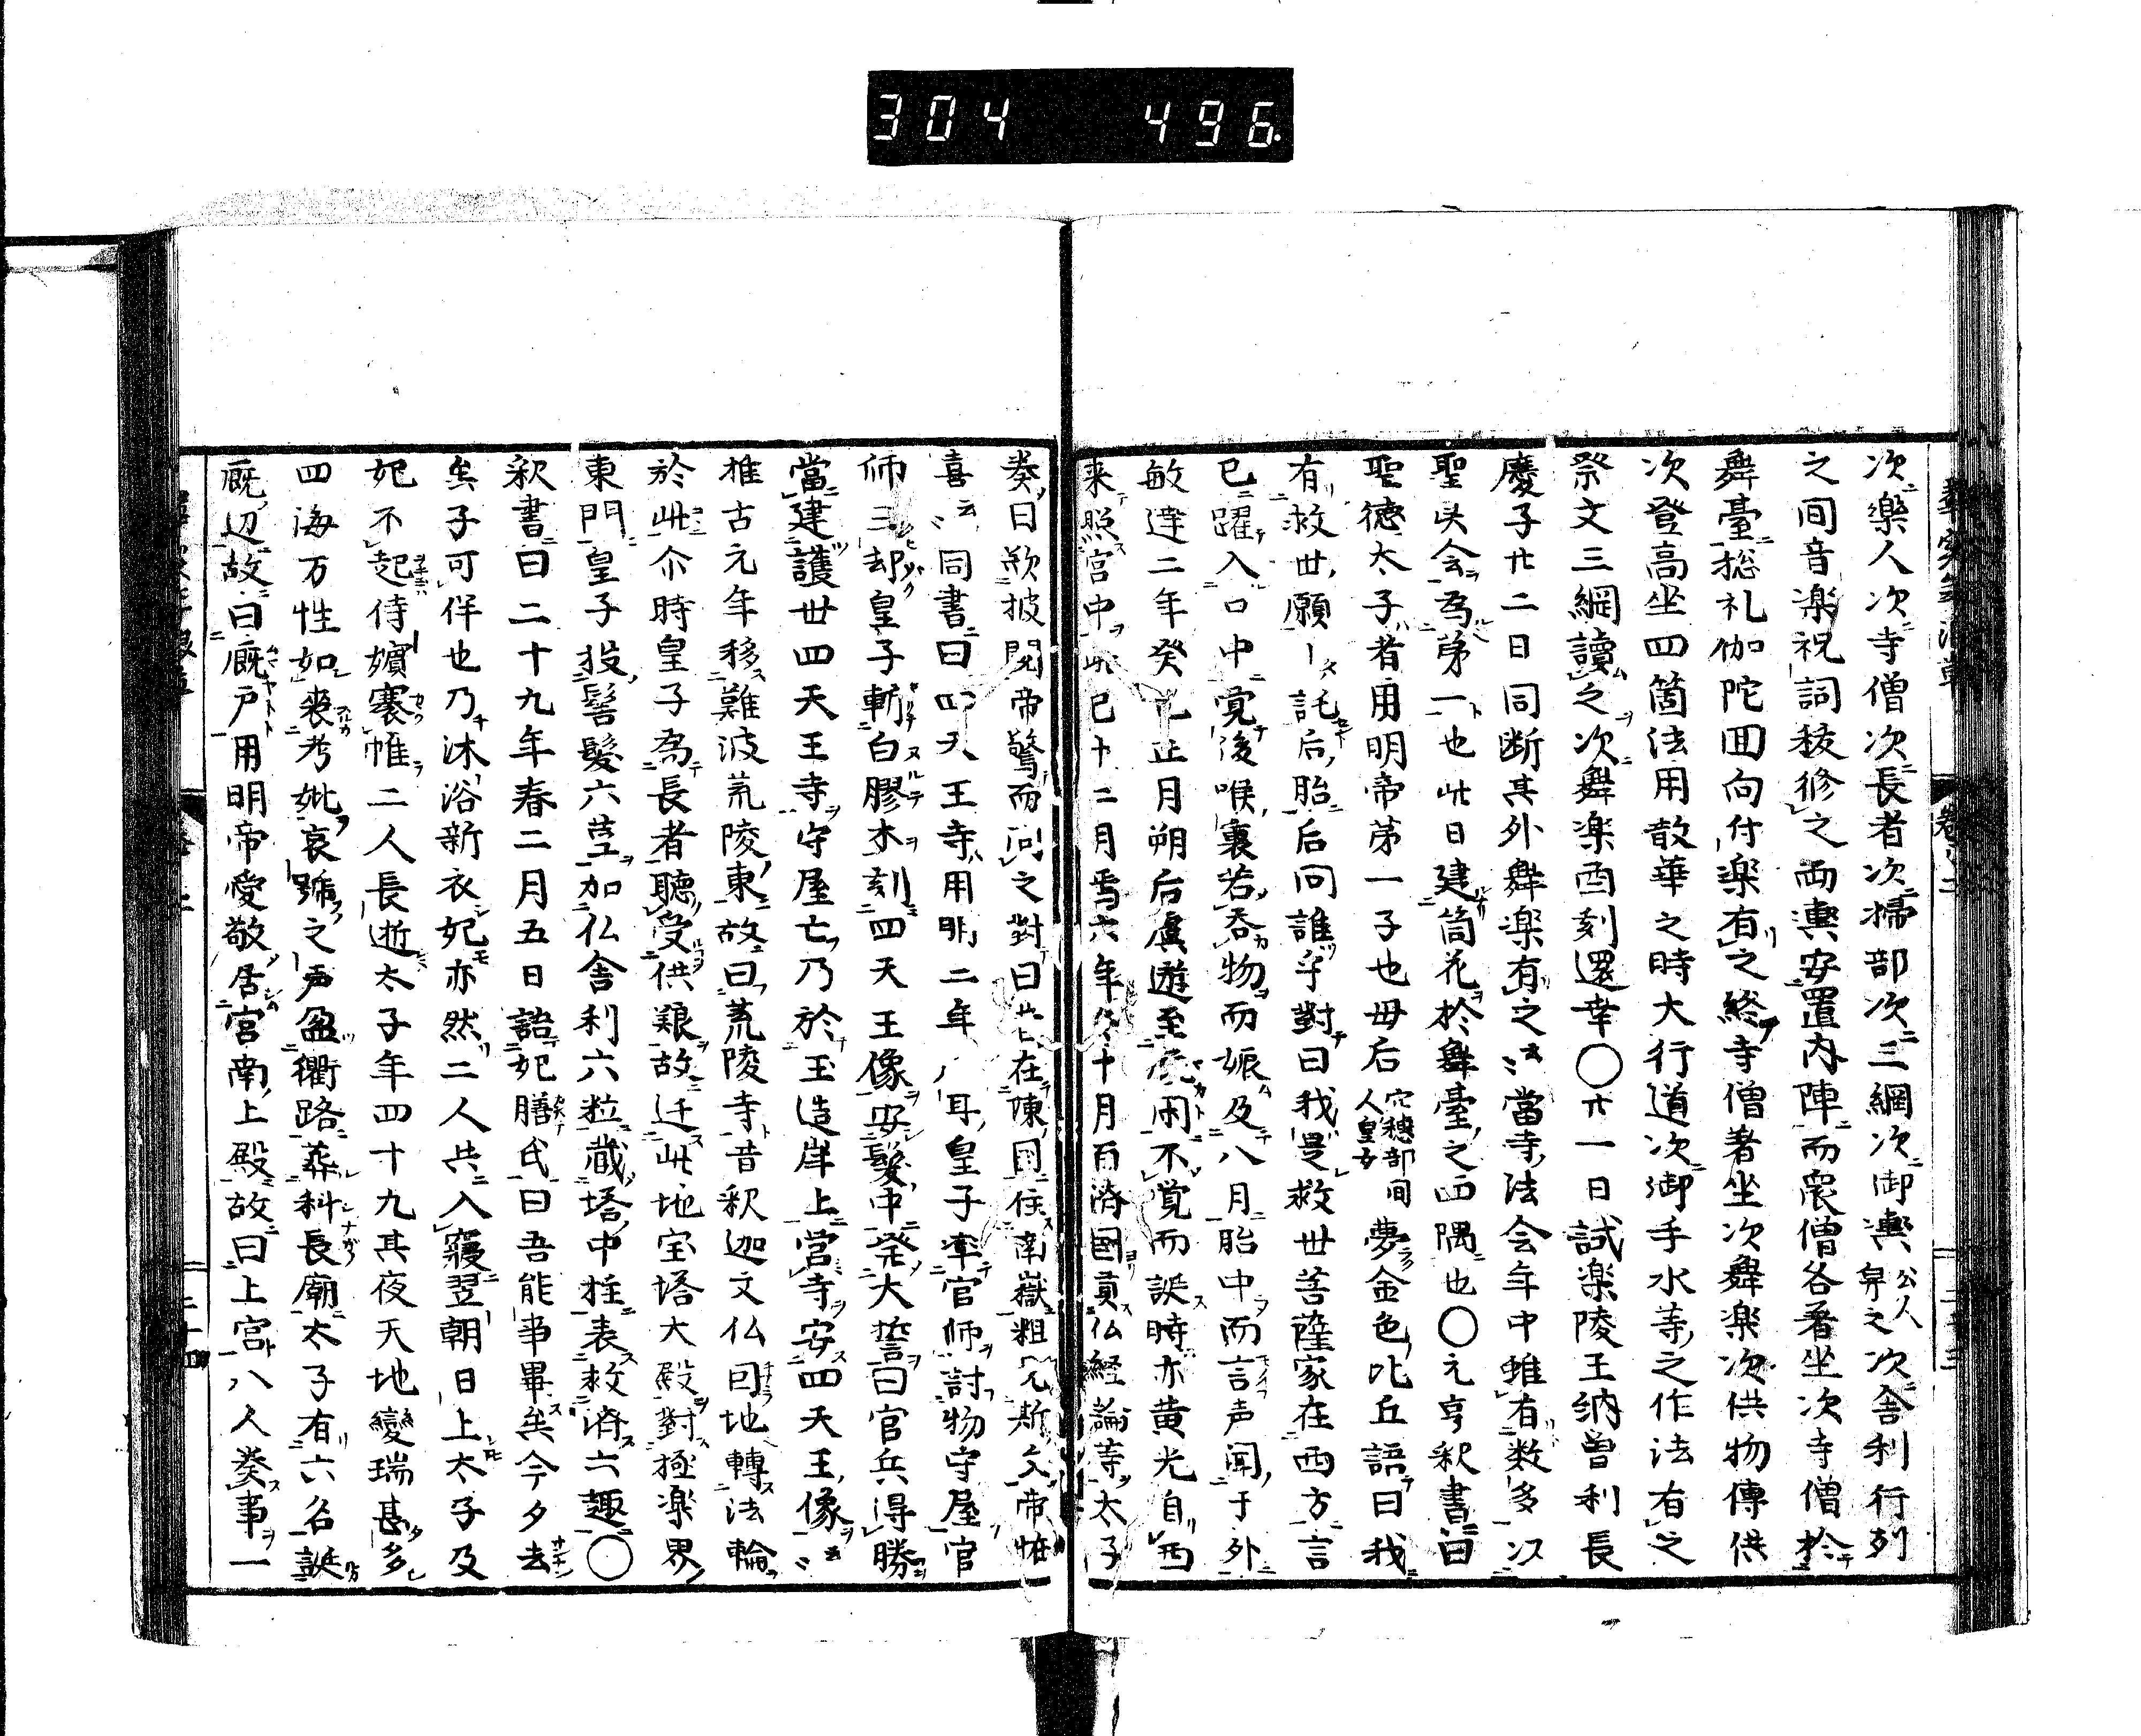 304 496
次樂人次寺僧次長者次掃部次三綱次御輿公人舁之次舎利行列
之間音楽祝詞秡修之両輿安置内陣而衆僧各著坐次寺僧於
舞臺捴礼伽陀回向付楽有之終寺僧著坐次舞楽次供物傳供
次登高坐四箇法用散華之時大行道次御手水等之作法有之
祭文三綱讀之次舞楽酉刻還幸〇廿一日試楽陵王納曽利長
慶子廿二日同断其外舞楽有之云〻當寺法会年中雖有数多以
聖㚑会為第一也此日建筒花於舞臺之四隅也〇元亨釈書曰
聖徳太子者用明帝第一子也母后穴穂部間人皇女夢金色比丘語曰我
有救世願託后胎后問誰乎對曰我是救世菩薩家在西方言
已躍入口中覚後喉裏若呑物而娠及八月胎中而言声聞于外
敏達二年癸正月朔后虞遊至不覚而誕時亦黄光自西
来照宮中十二月六年冬十月百済國貢仏経論等太子
奏曰欲披閲帝驚而问之對曰在陳国住南嶽粗斯文帝恠
喜云〻同書曰四天王寺用明二年皇子率官師討物守屋官
師三却皇子斬白膠木刻四天王像安髪中発大誓曰官兵得勝
當建護世四天王寺守屋亡乃於玉造岸上営寺安四天王像云〻
推古元年移難波荒陵東故曰荒陵寺昔釈迦文仏回地轉法輪
於此尒時皇子為長者聴受供難故迁此地宝塔大殿對極楽界
東門皇子投髻髪六茎加仏舎利六粒蔵塔中柱表救済六趣〇
釈書曰二十九年春二月五日詣妃膳氏曰吾能事畢矣今夕去
矣子可伴也乃沐浴新衣妃亦然二人共入寝翌朝日上太子及
妃不起侍嬪褰帷二人長逝太子年四十九其夜天地變瑞甚多
四海万性如喪考妣哀號之声盈衢路葬科長廟太子有六名誕
厩辺故曰厩戸用明帝愛敬居宮南上殿故曰上宮八人奏事一